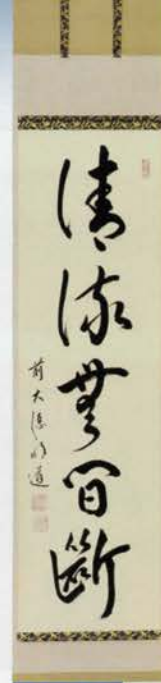 清流無間断
前大徳明道